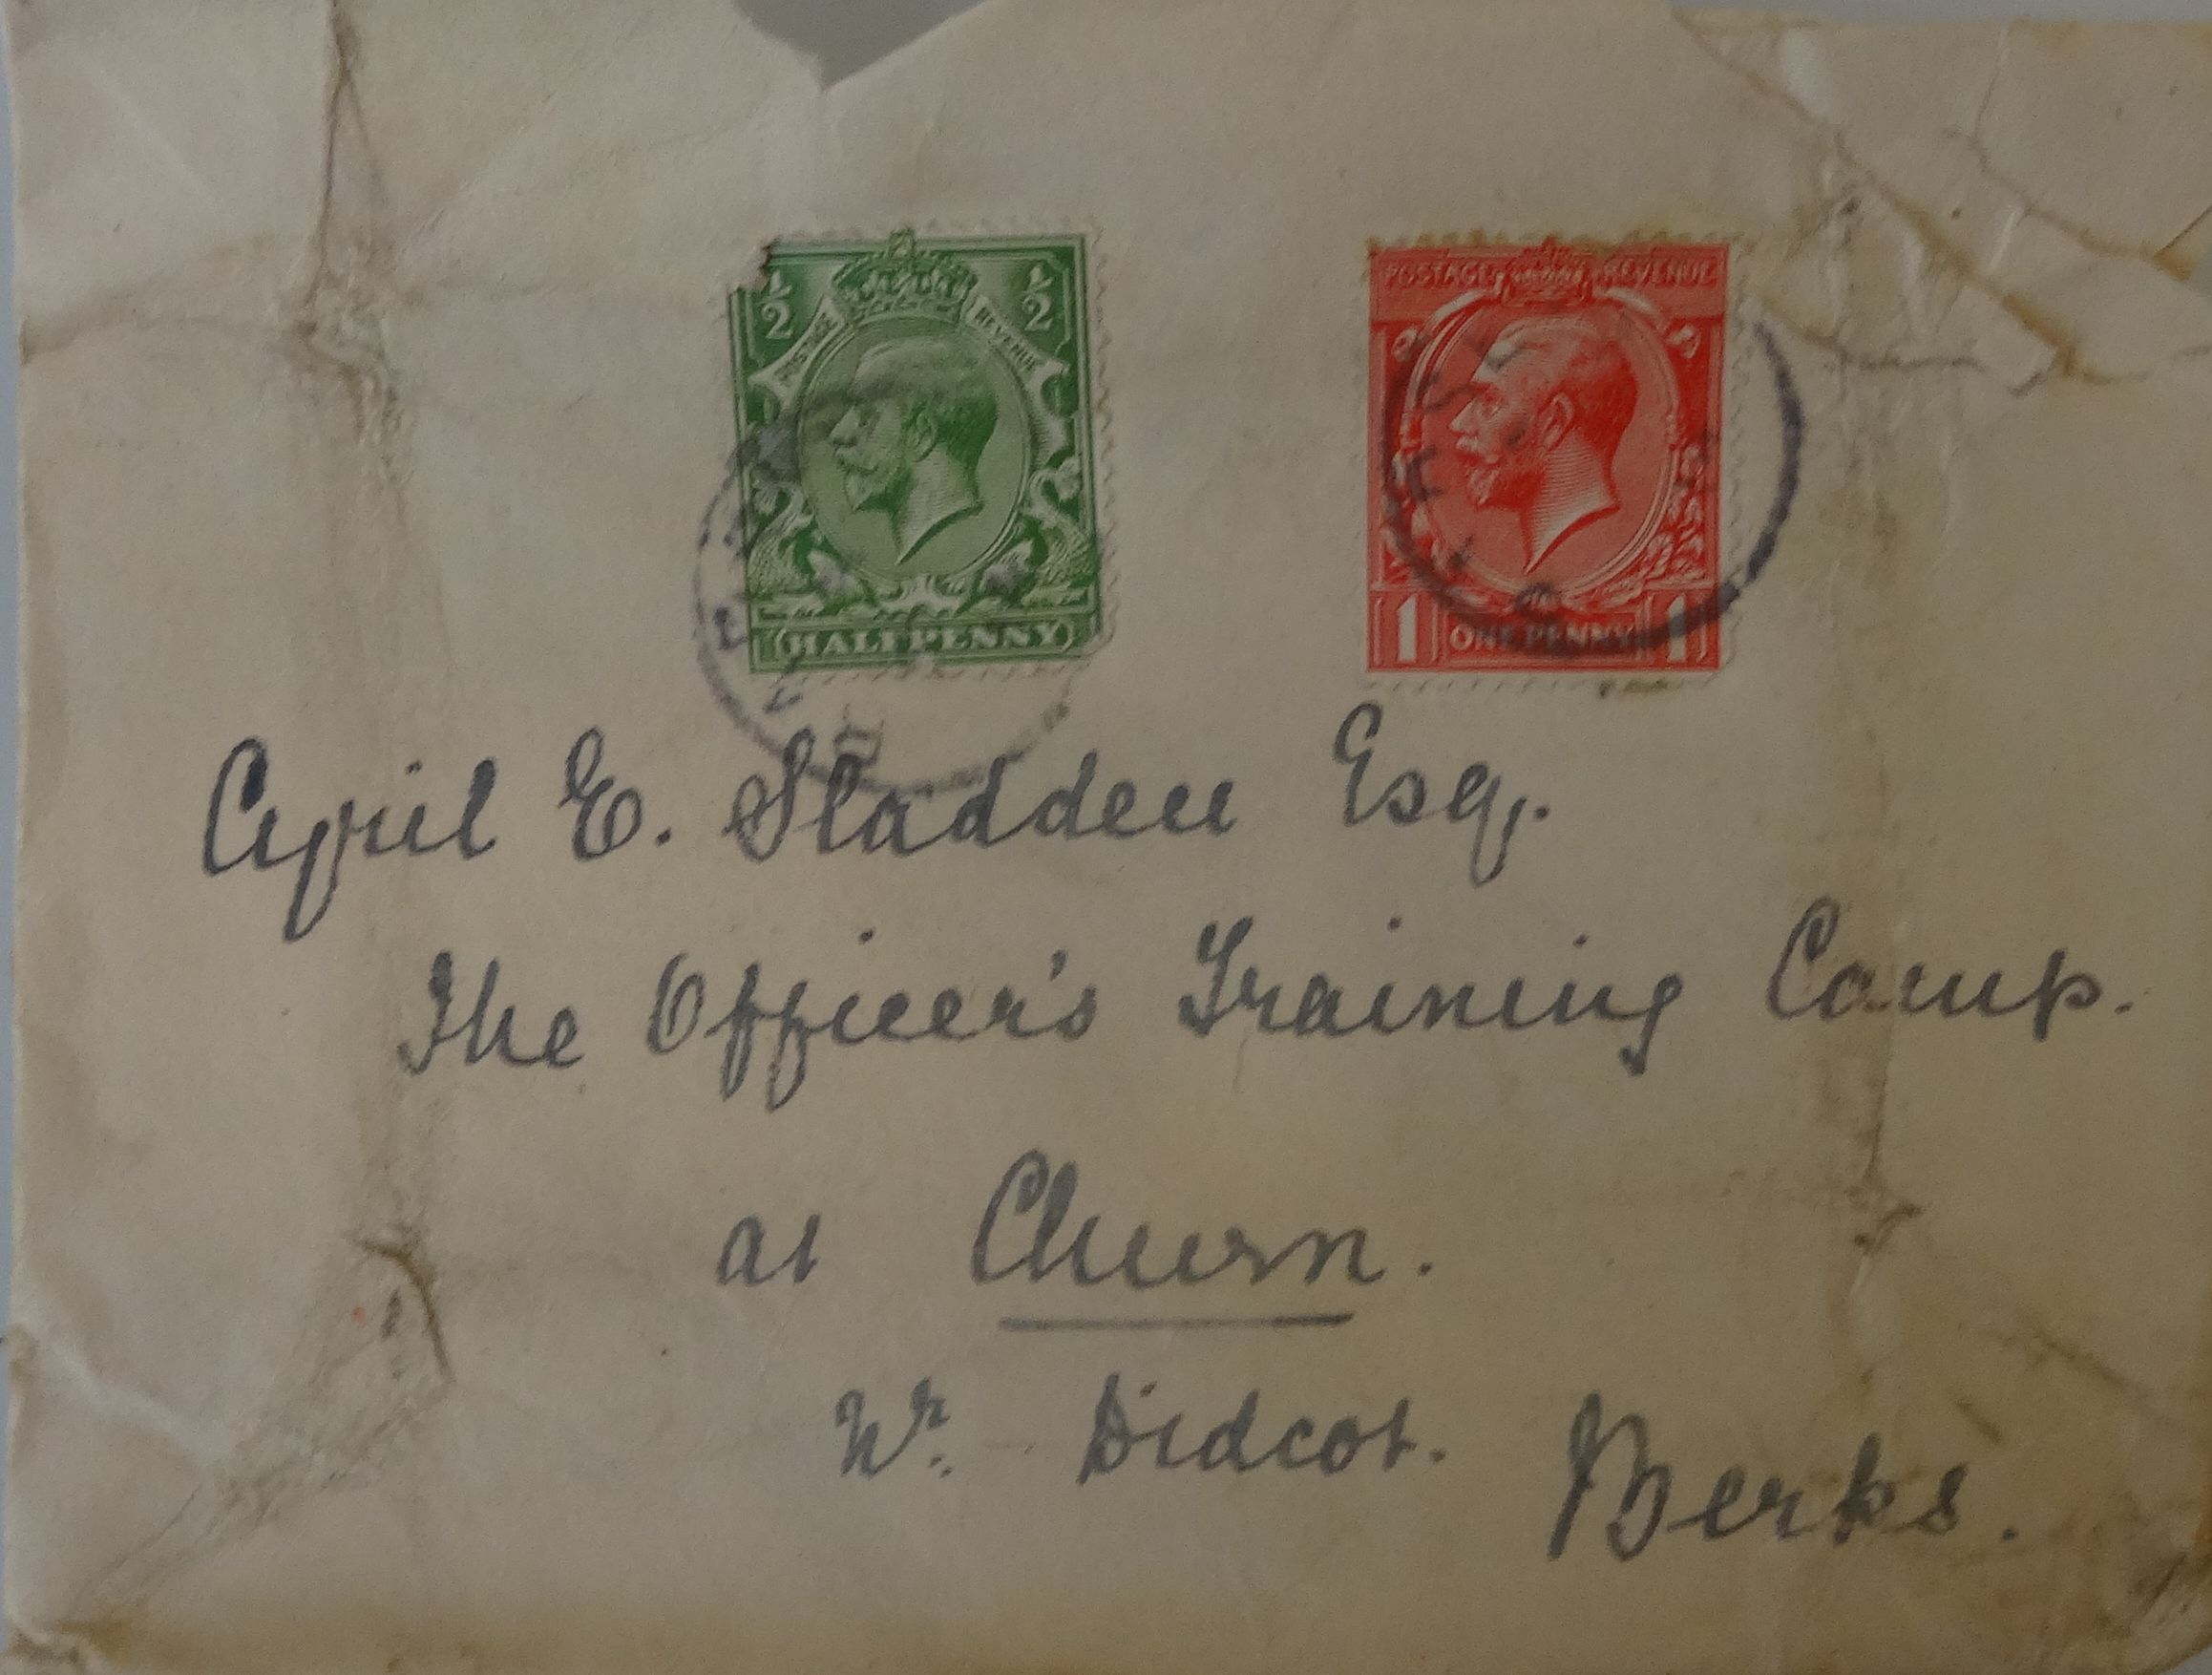 ½ ½
POSTAGE REVENUE
HALFPENNY
POSTAGE REVENUE
1 ONE PENNY 1
Cyril E. Sladden Esq.
The Officer's Training Camp.
at Churn.
Nr. Didcot. Berks.